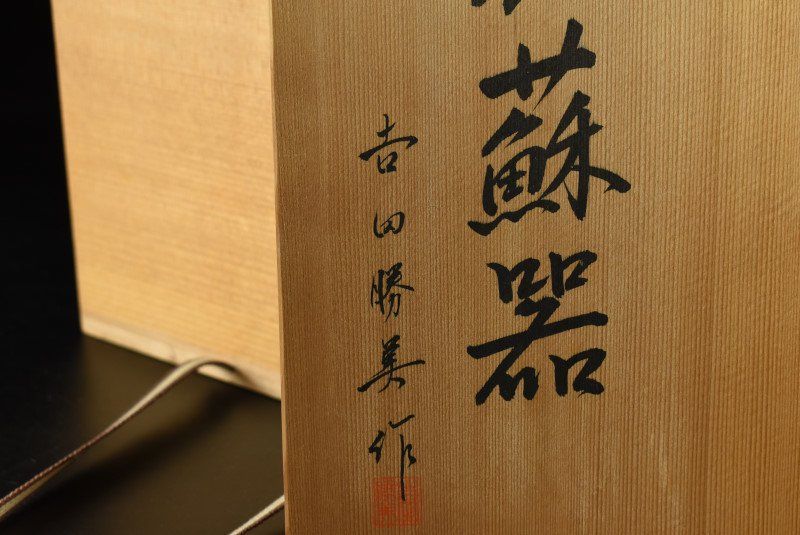 蘇器
吉田勝美作